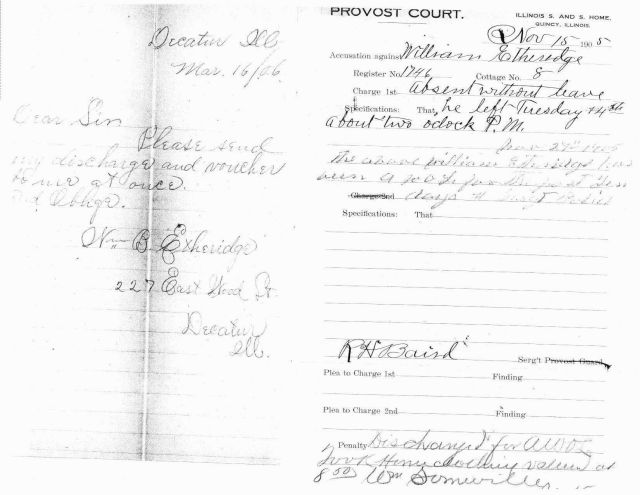 Decatur Ills
Mar. 16/06.
Dear Sir
Please send
my discharge and voucher
to me at once.
and Oblige.
Wm B. Etheridge
227 East Wood St.
Decatur
Ill.
PROVOST COURT.
ILLINOIS S. AND S. HOME,
QUINCY, ILLINOIS.
Nov 15 1905
Accusation against William Etheridge
Register No. 1746 Cottage No. 8
Charge 1st absent without leave
Specifications: That, he left Tuesday 14th
about two oclock P.M.
Nov 27th 1905
the above William Etheridge has
been A.W.O.L. for the past Ten
Charge 2nd days
Specifications: That
R H Baird
Serg't Provost Guard,
Plea to Charge 1st Finding
Plea to Charge 2nd Finding
Penalty Discharged for AWOL
Took Home clothing valued at
8.50 Wm Somerville